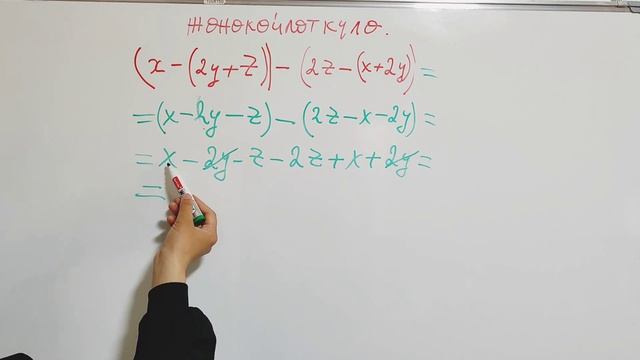 жөнөкөйлөткүлө.
(x-(2y+z))-(2z-(x+2y))=
=(x-2y-z)-(2z-x-2y)=
=x-2y-z-2z+x+2y=
=